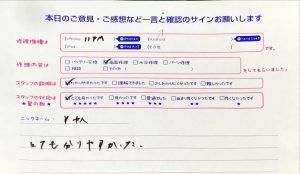 本日のご意見・ご感想など一言と確認のサインお願いします
修理機種は iPhone 11PM Android
iPad その他
修理内容は バッテリー交換 画面修理 水没修理 パーツ修理
その他 をしてもらいました。
スタッフの説明は わかりやすかったです 理解できました 少しわかりにくかったです 難しかったです
スタッフの対応は とても良かったです 良かったです 普通でした あまり良くなかったです 良くなかったです
★星の数★ ★★★★★ ★★★★ ★★★ ★★ ★
ニックネーム:
とてもわかりやすかった。